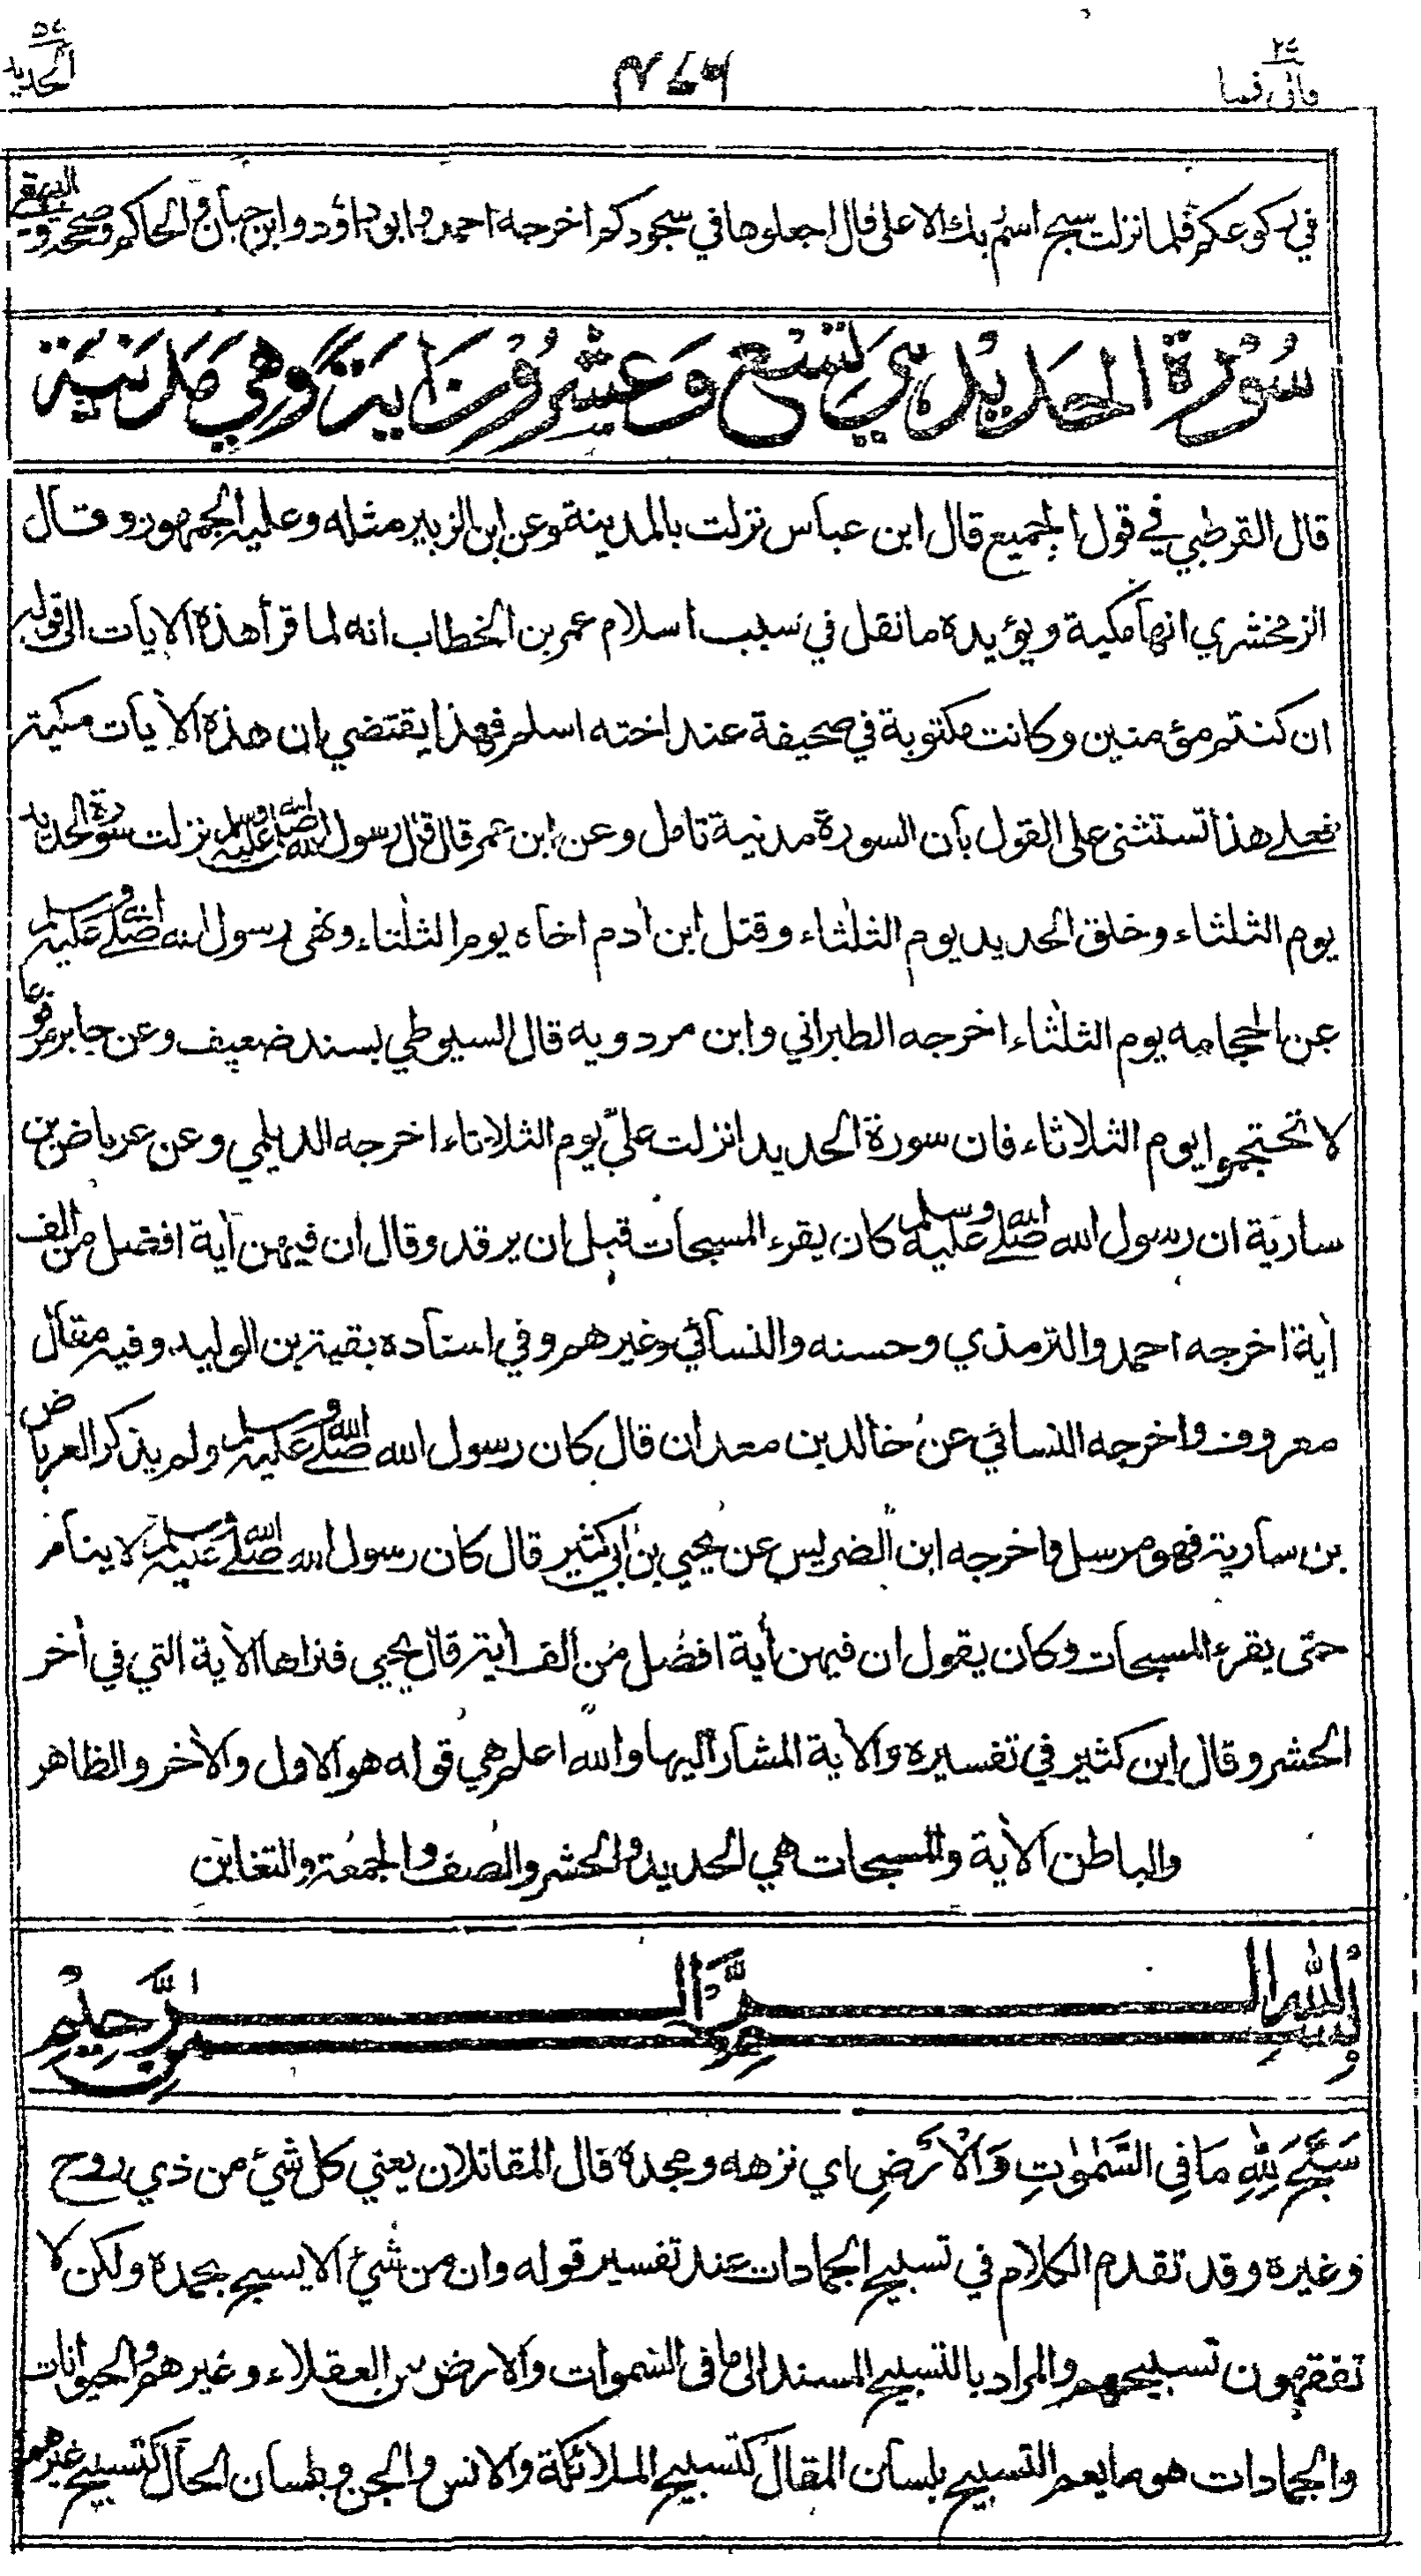 ٢٧
قال فما
٥٧
الحديد
في ركوعكم فلما نزلت سبح اسم ربك الاعلى قال اجعلوها في سجودكم اخرجه احمد وابو داؤد وابن حبان والحاكم وصححه والبيهقي
سُوْرَةُ الحَدِيْدِ هِيَ تِسْعٌ وَعِشْرُوْنَ اٰيَةً وَهِيَ مَدَنِيَّة
قال القرطبي في قول الجميع قال ابن عباس نزلت بالمدينة وعن ابن الزبير مثله وعليه الجمهور وقال
الزمخشري انها مكية ويؤيده ما نقل في سبب اسلام عمر بن الخطاب انه لما قرأ هذه الايات الى قوله
ان كنتم مؤمنين وكانت مكتوبة في صحيفة عند اخته اسلم فهذا يقتضي ان هذه الأيات مكية
فعلے هذا تستثنى على القول بأن السورة مدنية تامل وعن ابن عمر قال قال رسول الله صلى الله عليه وسلم نزلت سورة الحديد
يوم الثلثاء وخلق الحديد يوم الثلثاء وقتل ابن أدم اخاه يوم الثلثاء ونهى رسول الله صلى الله عليه وسلم
عن الحجامه يوم الثلثاء اخرجه الطبراني وابن مردويه قال السيوطي بسند ضعيف وعن جابر مرفوعا
لا تحتجموا يوم الثلاثاء فان سورة الحديد انزلت عليّ يوم الثلاثاء اخرجه الديلمي وعن عرباض بن
سارية ان رسول الله صلى الله عليه وسلم كان يقرء المسبحات قبل ان يرقد وقال ان فيهن أية افضل من الف
أية اخرجه احمد والترمذي وحسنه والنسائي وغيرهم وفي اسناده بقية بن الوليد وفيه مقال
معروف واخرجه النسائي عن خالد بن معدان قال كان رسول الله صلى الله عليه وسلم ولم يذكر العرباض
بن سارية فهو مرسل واخرجه ابن الضريس عن يحيي بن ابي كثير قال كان رسول الله صلى الله عليه وسلم لا ينام
حتى يقرء المسبحات وكان يقول ان فيهن أية افضل من الف أية قال يحيي فنراها الأية التي في أخر
الحشر وقال ابن كثير في تفسيره والأية المشار اليها والله اعلم هي قوله هو الاول والأخر والظاهر
والباطن الأية والمسبحات هي الحديد والحشر والصف والجمعة والتغابن
بِسْمِ اللهِ الرَّحْمٰنِ الرَّحِيْمِ
سَبَّحَ لِلّٰهِ مَا فِي السَّمٰوٰتِ وَالْاَرْضِ اي نزهه ومجده قال المقاتلان يعني كل شيْ من ذي روح
وغيره وقد تقدم الكلام في تسبيح الجمادات عند تفسير قوله وان من شيْ الا يسبح بحمده ولكن لا
تفقهون تسبيحهم والمراد بالتسبيح المسند الى ما فى السموات والارض من العقلاء وغيرهم والحيوانات
والجمادات هو ما يعم التسبيح بلسان المقال كتسبيح الملائكة والانس والجن وبلسان الحال كتسبيح غيرهم